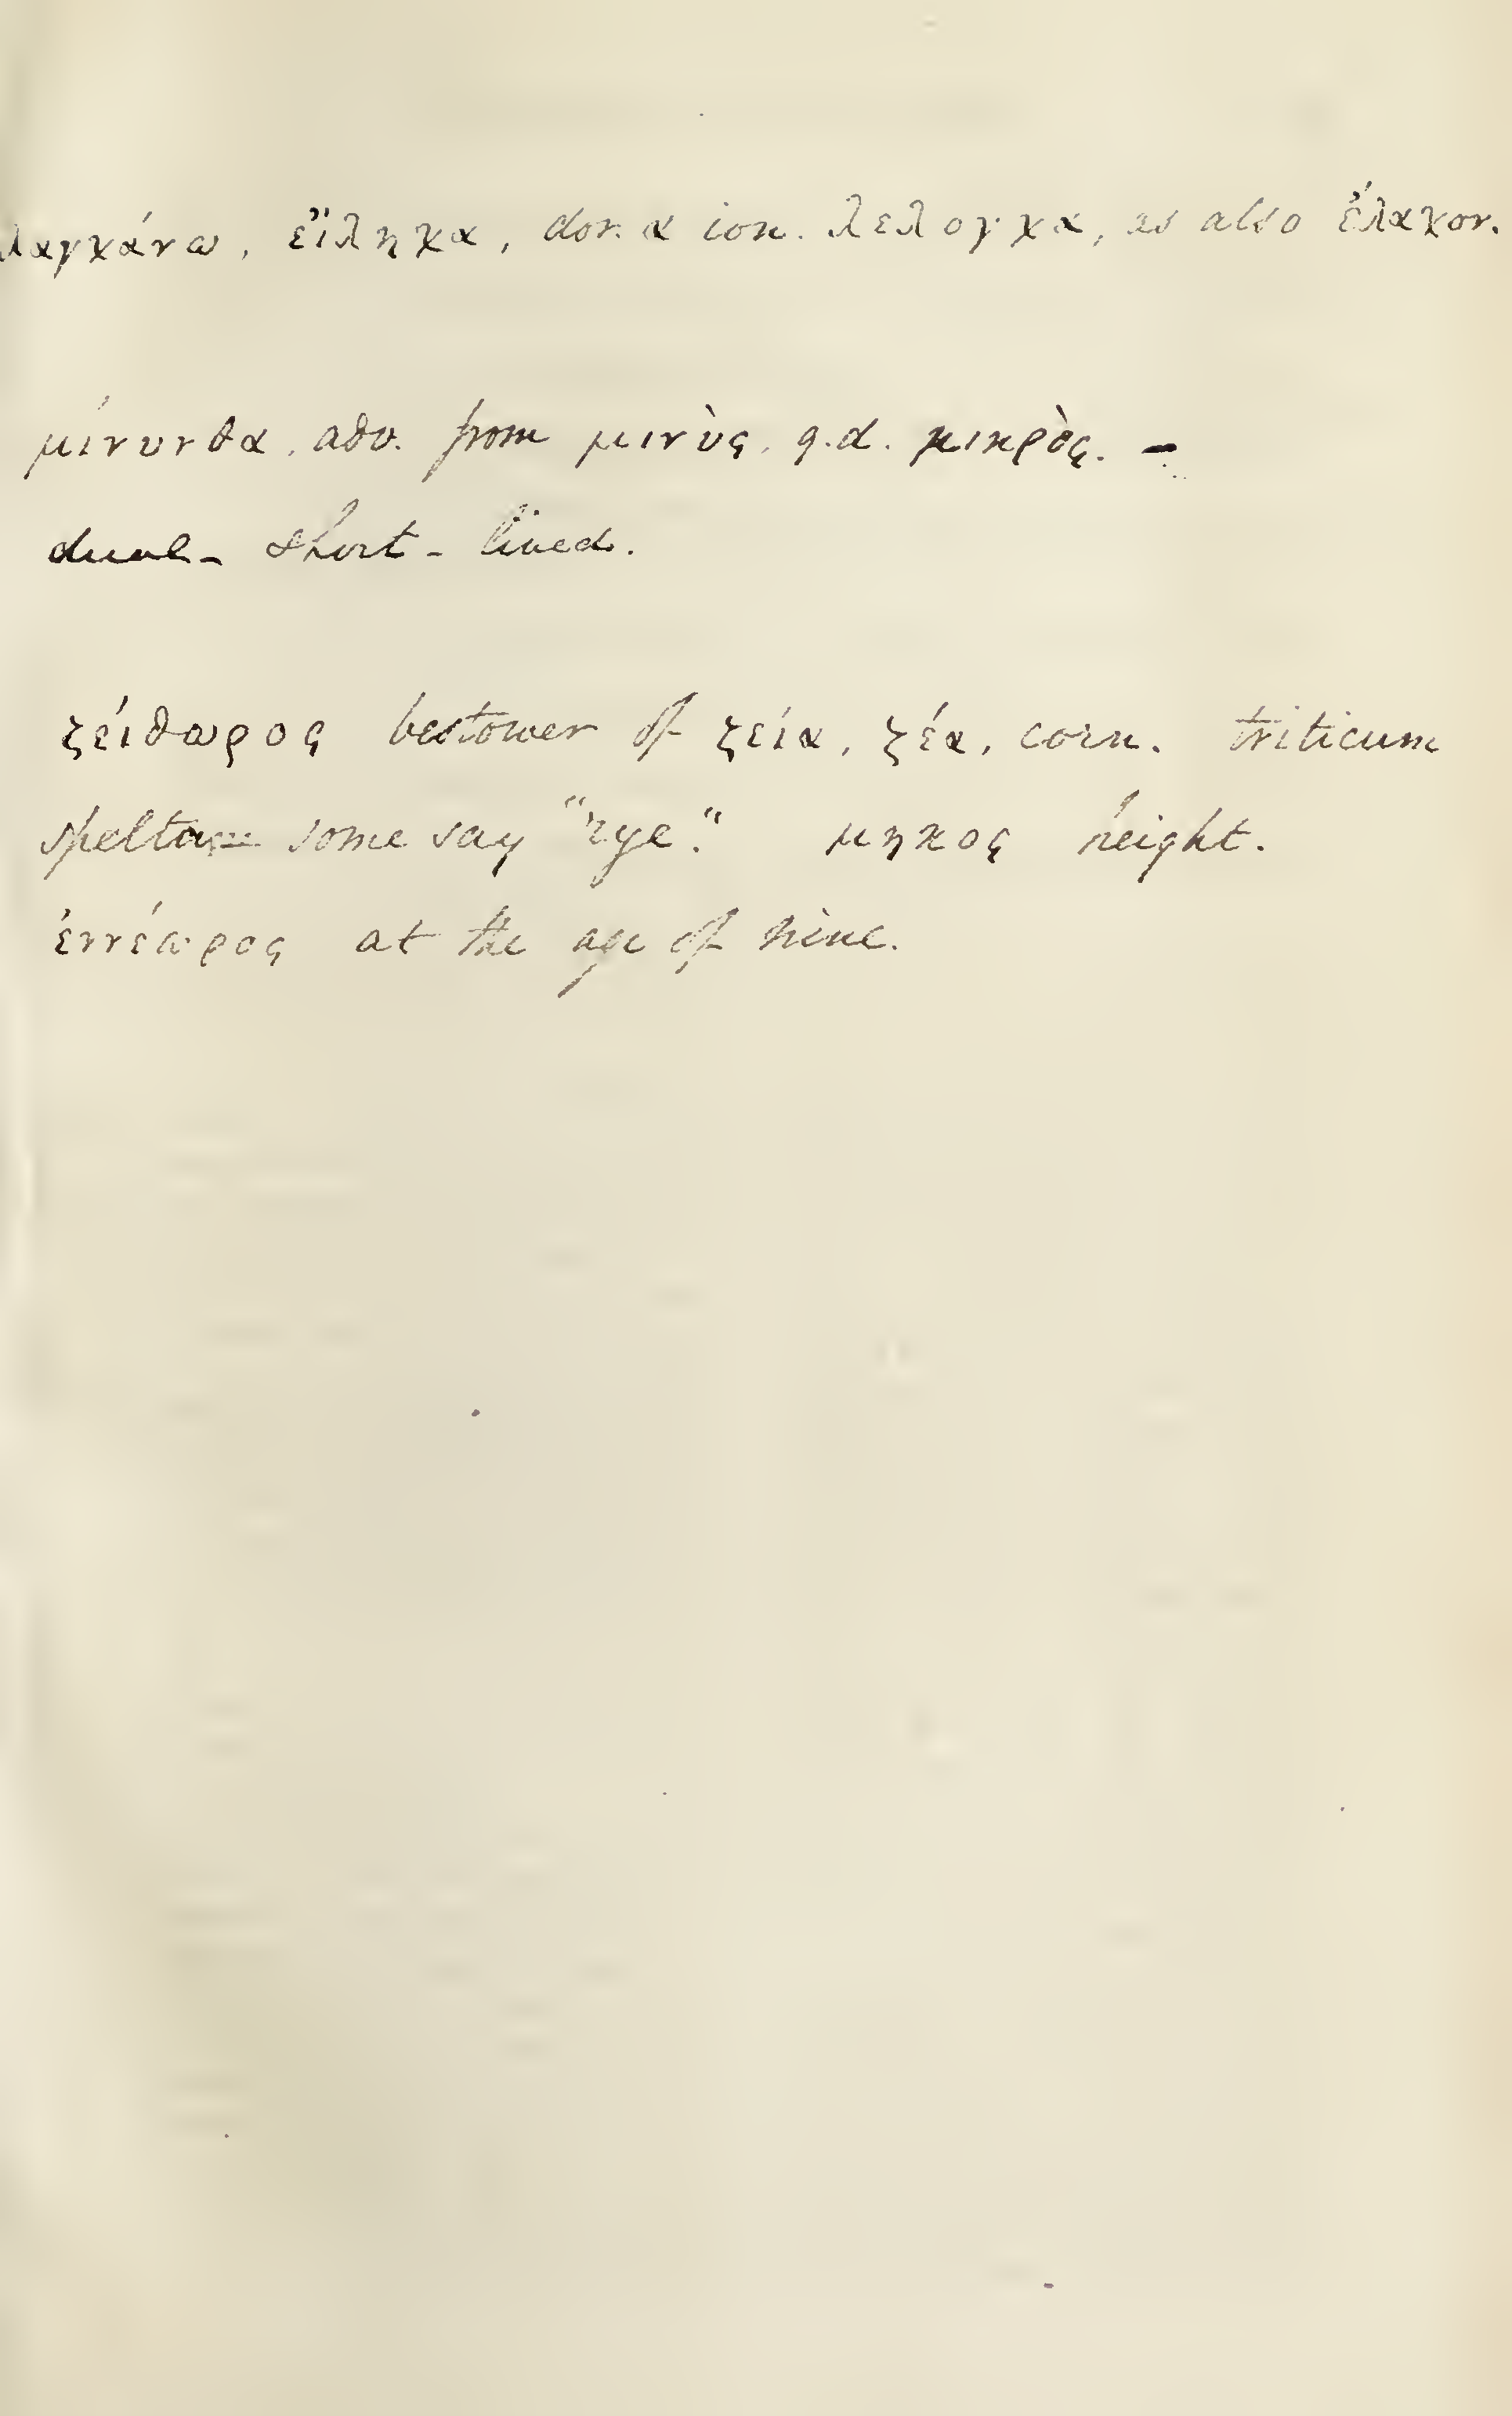 λαγχάνω, εἴληχα, dor. & ion. λελογχα, as also ἔλαχον.
μίνυνθα, adv. from μινὺς, q.d. μικρὸς. —
dual - short - lived.
ζείδωρος bestower of ζεία, ζέα, corn. triticum
spelta some say "rye." μηκος height.
ἐννέωρος at the age of nine.